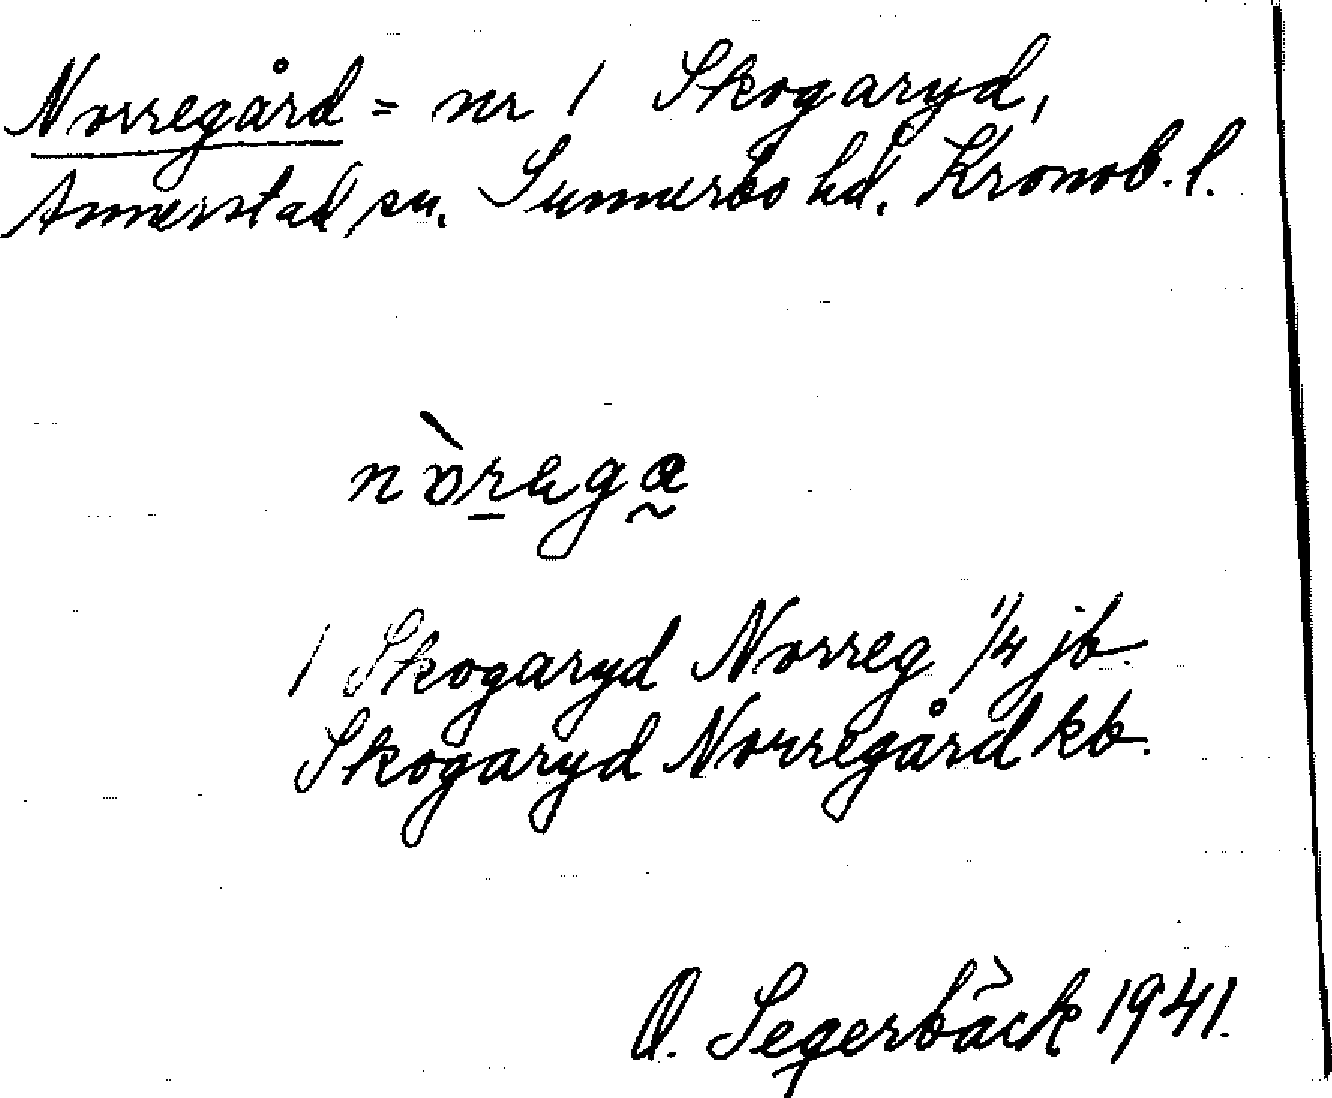 Norregård = nr 1 Skogaryd,
Annerstad sn, Sunnerbo hd, Kronob. l.
nòrega
1 Skogaryd Norreg 1/4 jb.
Skogaryd Norregård kb.
O. Segerbäck 1941.